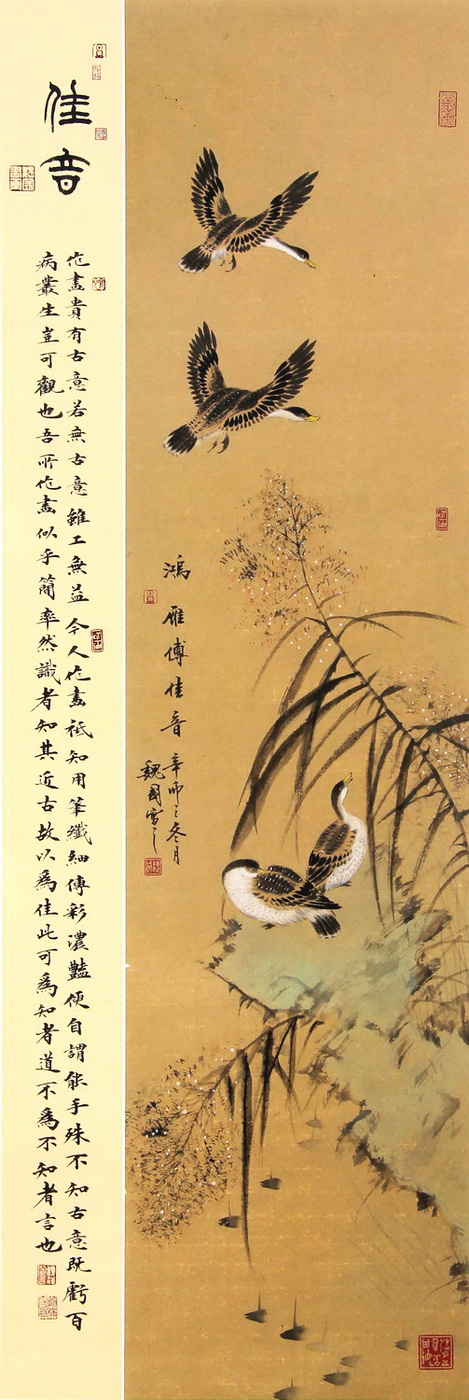 佳音
作畫貴有古意若無古意雖工無益今人作畫祗知用筆纖細傅彩濃豔便自謂能手殊不知古意既虧百
病叢生豈可觀也吾所作畫似乎簡率然識者知其近古故以爲佳此可爲知者道不爲不知者言也
鴻雁傳佳音
辛卯之冬月
魏國寫之